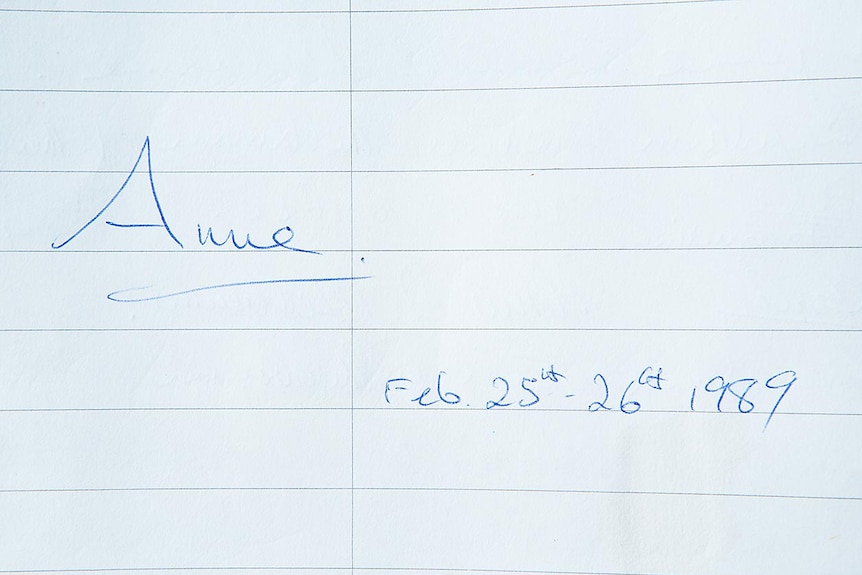 Anne.
Feb. 25th - 26th 1989